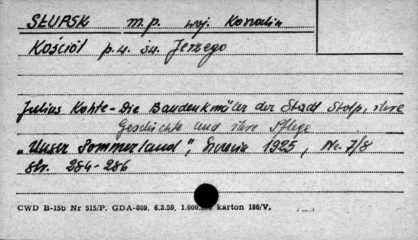 SŁUPSK m.p. woj. Koszalin
Kościół p.w. św. Jerzego
Julius Kohte - Die Baudenkmäler der Stadt Stolp, ihre
Geschichte und ihre Pflege
„Unser Pommerland", 1925, Nr. 7/8
Str. 284-286
CWD B-15b Nr 515/P. GDA-809. 6.3.59. 1.000.000 karton 180/V.